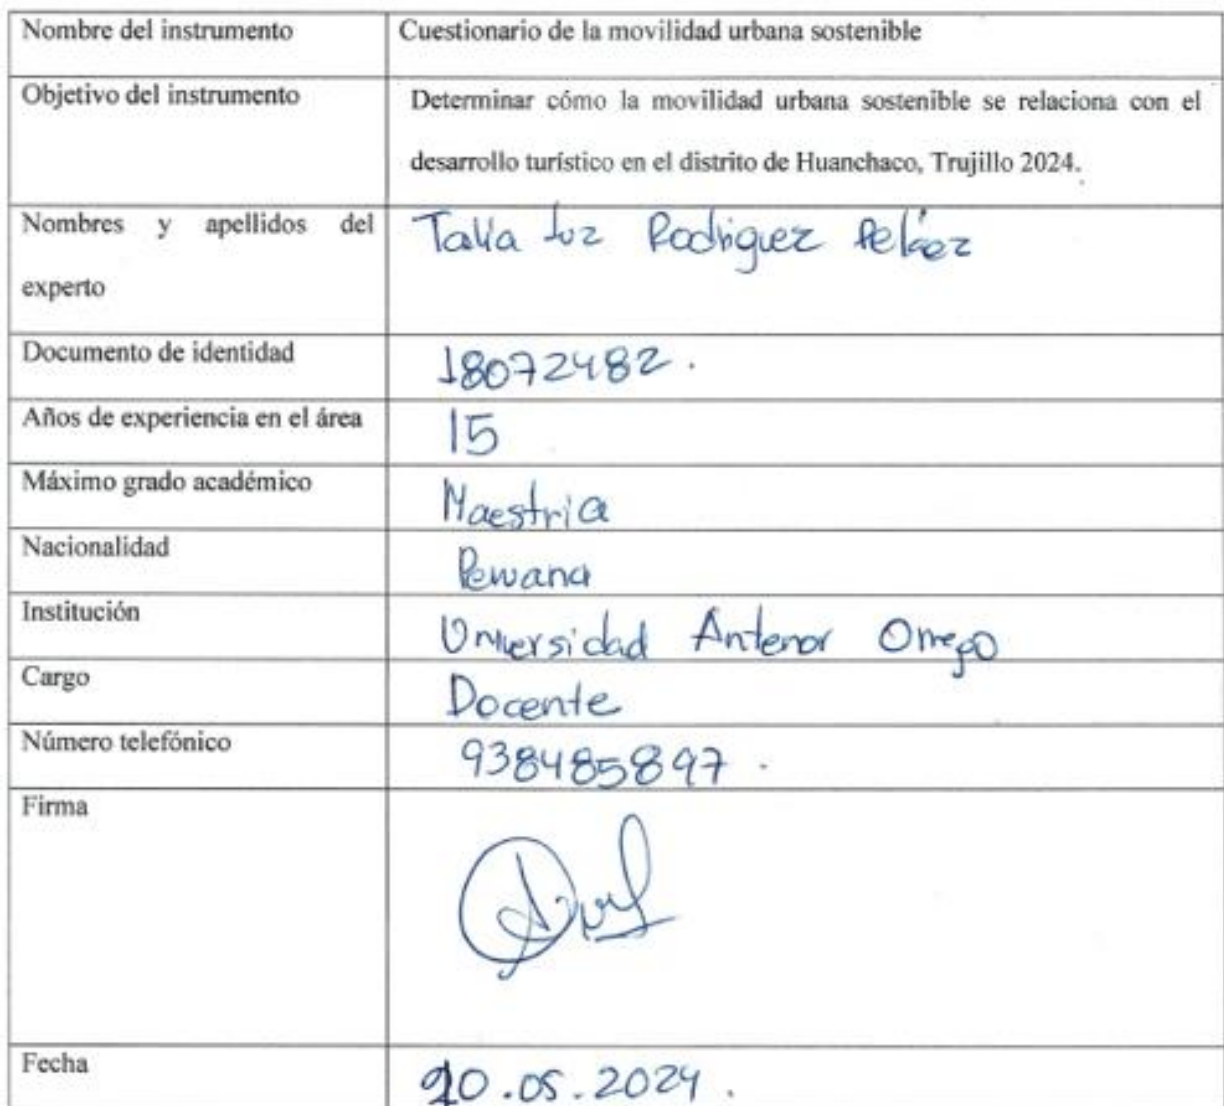 Nombre del instrumento Cuestionario de la movilidad urbana sostenible
Objetivo del instrumento Determinar cómo la movilidad urbana sostenible se relaciona con el
desarrollo turístico en el distrito de Huanchaco, Trujillo 2024.
Nombres y apellidos del Talía Luz Rodriguez Peláez
experto
Documento de identidad 18072482.
Años de experiencia en el área 15
Máximo grado académico Maestria
Nacionalidad Peruana
Institución Universidad Antenor Orrego
Cargo Docente
Número telefónico 938485897.
Firma
Fecha .05.2024.